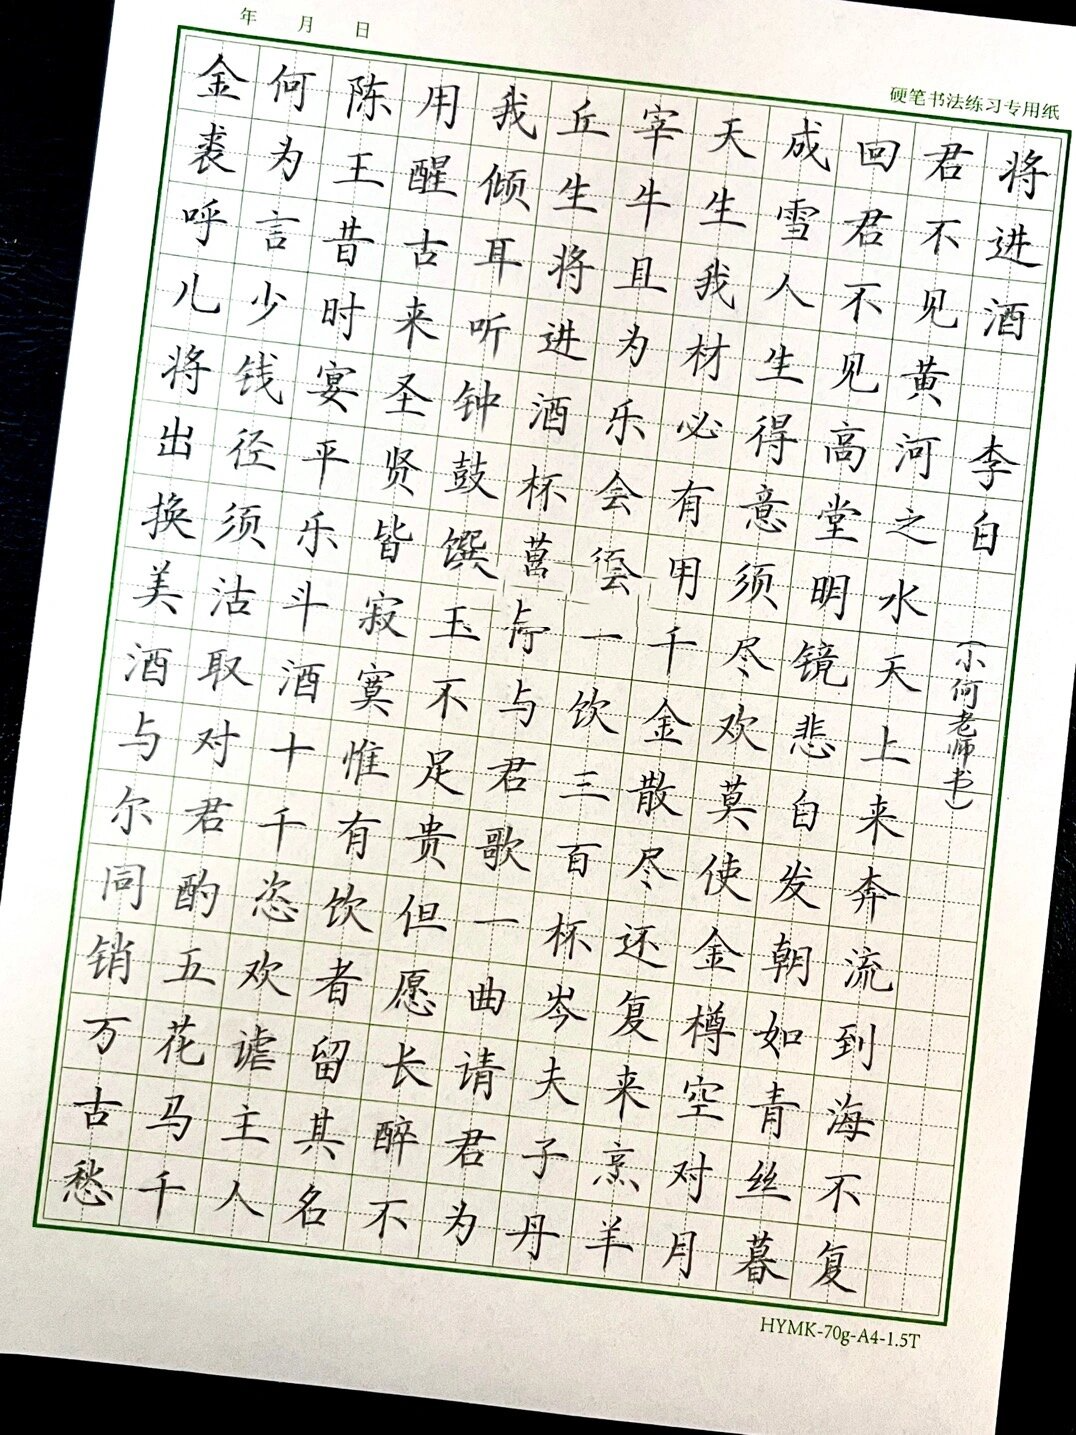 年 月 日
硬笔书法练习专用纸
将进酒 李白（小何老师书）
君不见黄河之水天上来奔流到海不复
回君不见高堂明镜悲白发朝如青丝暮
成雪人生得意须尽欢莫使金樽空对月
天生我材必有用千金散尽还复来烹羊
宰牛且为乐会一饮三百杯岑夫子丹
丘生将进酒杯与君歌一曲请君为
我倾耳听钟鼓馔玉不足贵但愿长醉不
用醒古来圣贤皆寂寞惟有饮者留其名
陈王昔时宴平乐斗酒十千恣欢谑主人
何为言少钱径须沽取对君酌五花马千
金裘呼儿将出换美酒与尔同销万古愁
HYMK-70g-A4-1.5T